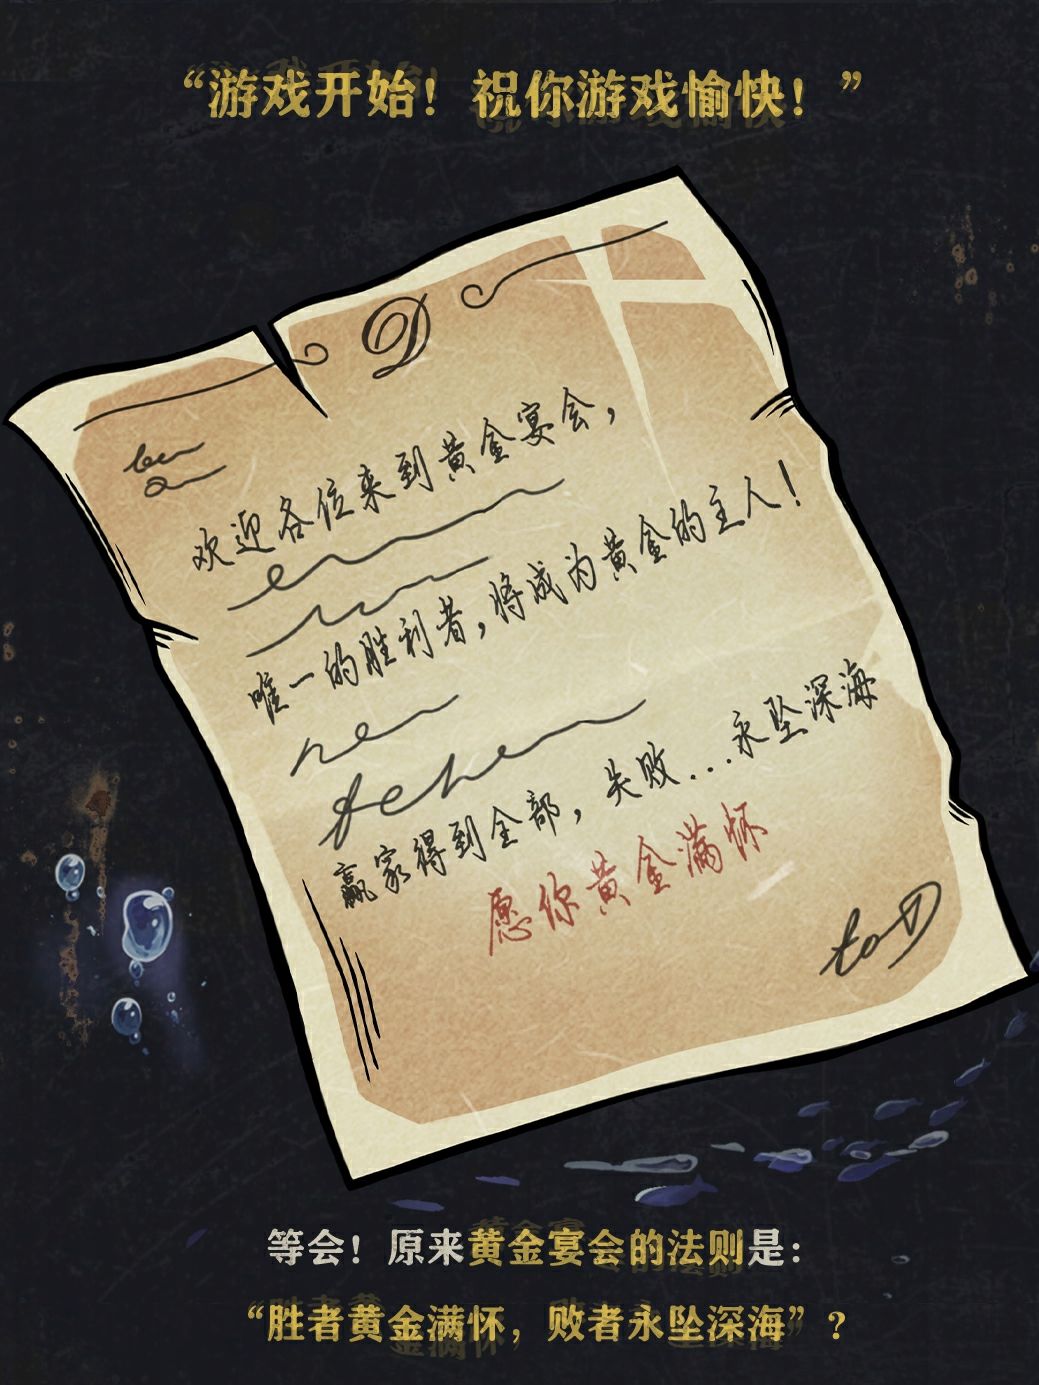 “游戏开始！祝你游戏愉快！”
D
欢迎各位来到黄金宴会，
唯一的胜利者，将成为黄金的主人！
赢家得到全部，失败...永坠深海
愿你黄金满怀
to D
等会！原来黄金宴会的法则是：
“胜者黄金满怀，败者永坠深海”？